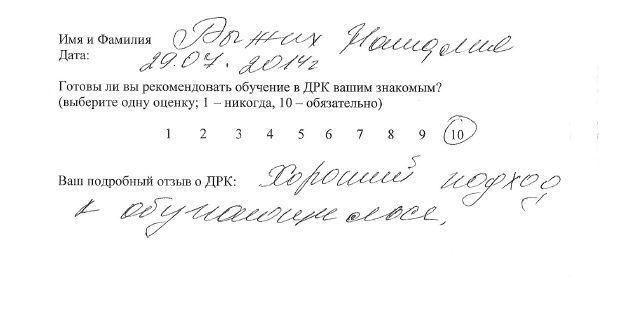 Имя и Фамилия Выжих Наталие
Дата: 29.07.2014г
Готовы ли вы рекомендовать обучение в ДРК вашим знакомым?
(выберите одну оценку; 1 – никогда, 10 – обязательно)
1 2 3 4 5 6 7 8 9 10
Ваш подробный отзыв о ДРК: Хороший подход
к обучающимся.